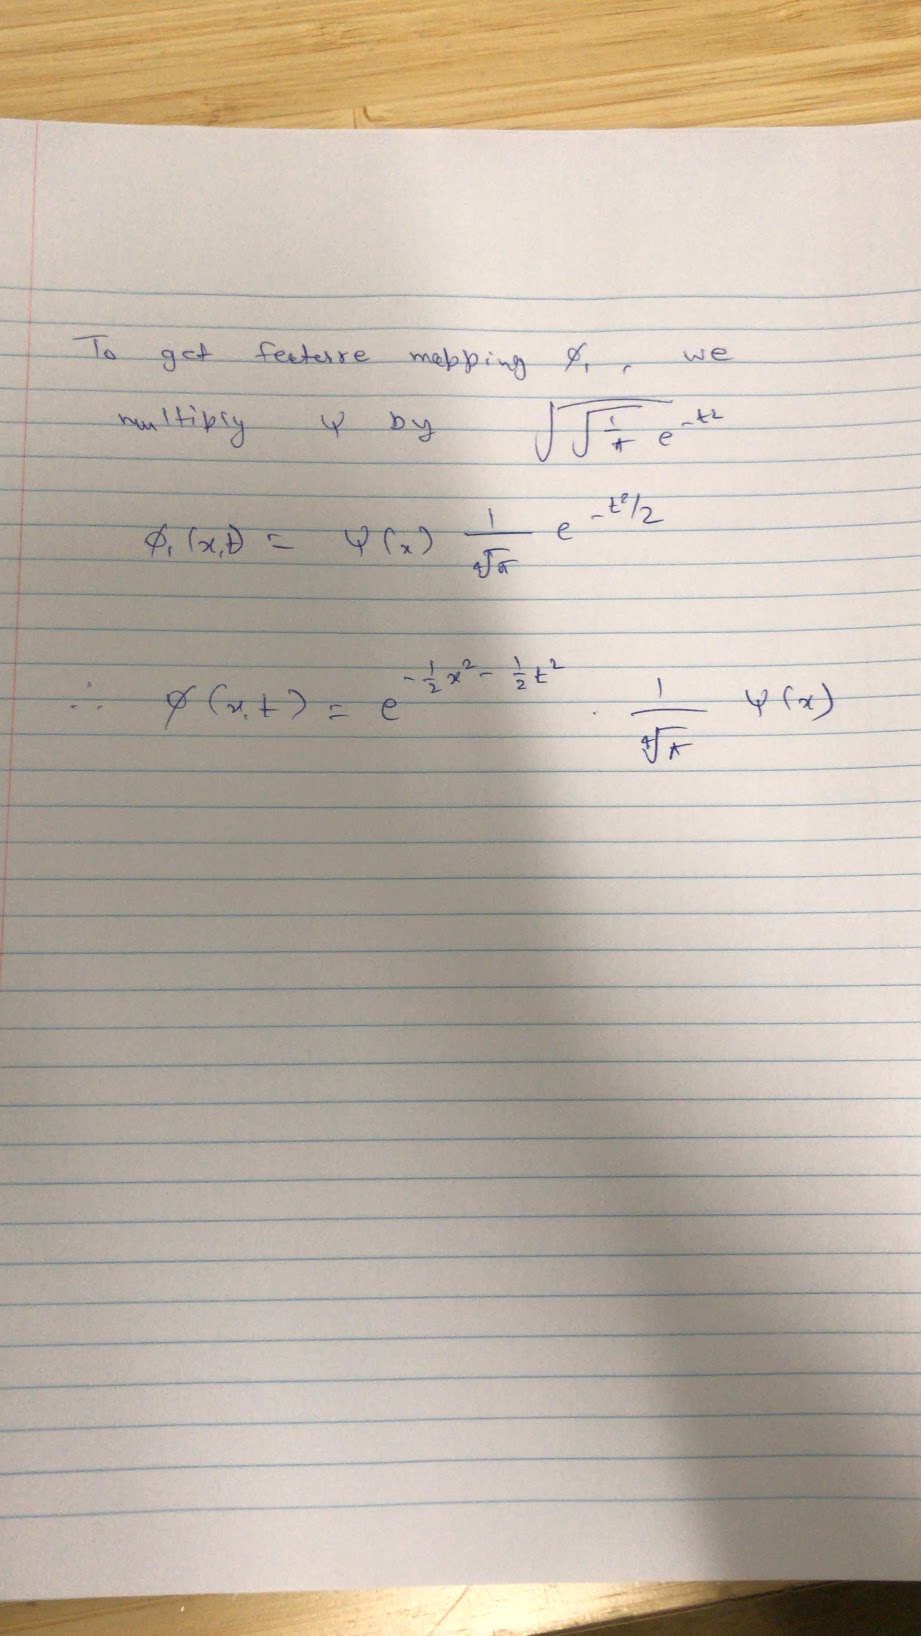 To get feature mapping ϕ₁, we
multiply ψ by √(√(1/π) e^(-t²))
ϕ₁(x,t) = ψ(x) 1/∜π e^(-t²/2)
∴ ϕ(x,t) = e^(-½x² - ½t²) · 1/∜π ψ(x)